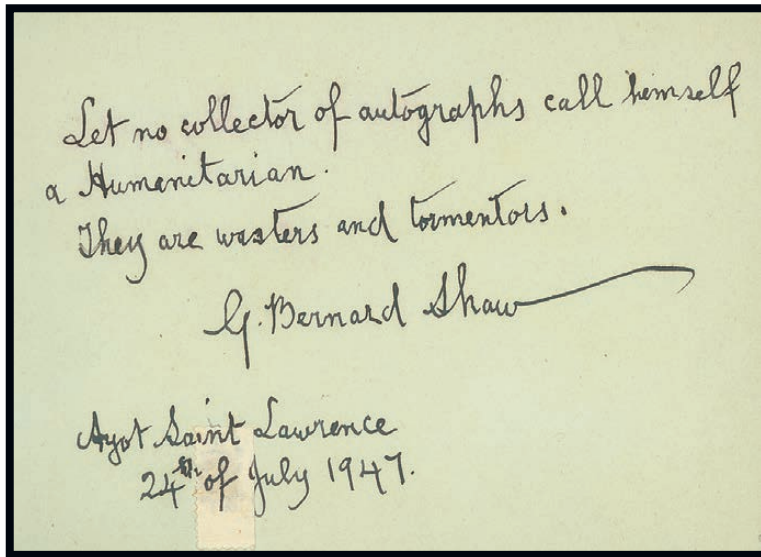 Let no collector of autographs call himself
a Humanitarian.
They are wasters and tormentors.
G. Bernard Shaw
Ayot Saint Lawrence
24th of July 1947.